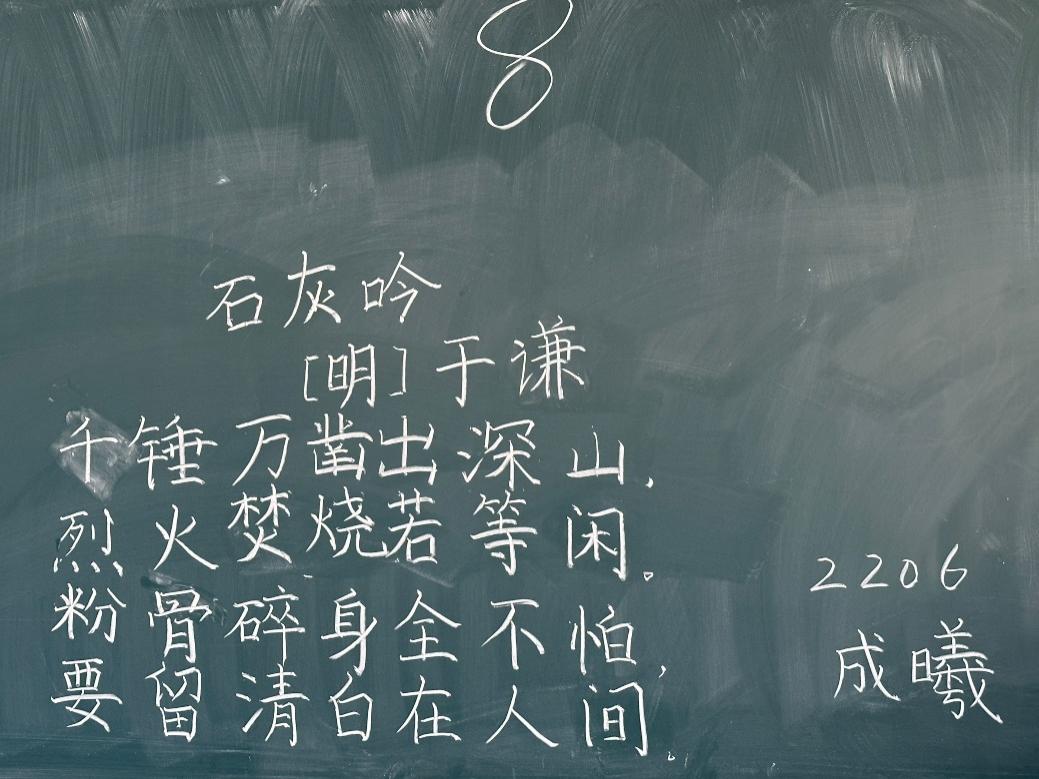 8
石灰吟
[明]于谦
千锤万凿出深山,
烈火焚烧若等闲。
粉骨碎身全不怕,
要留清白在人间。
2206
成曦